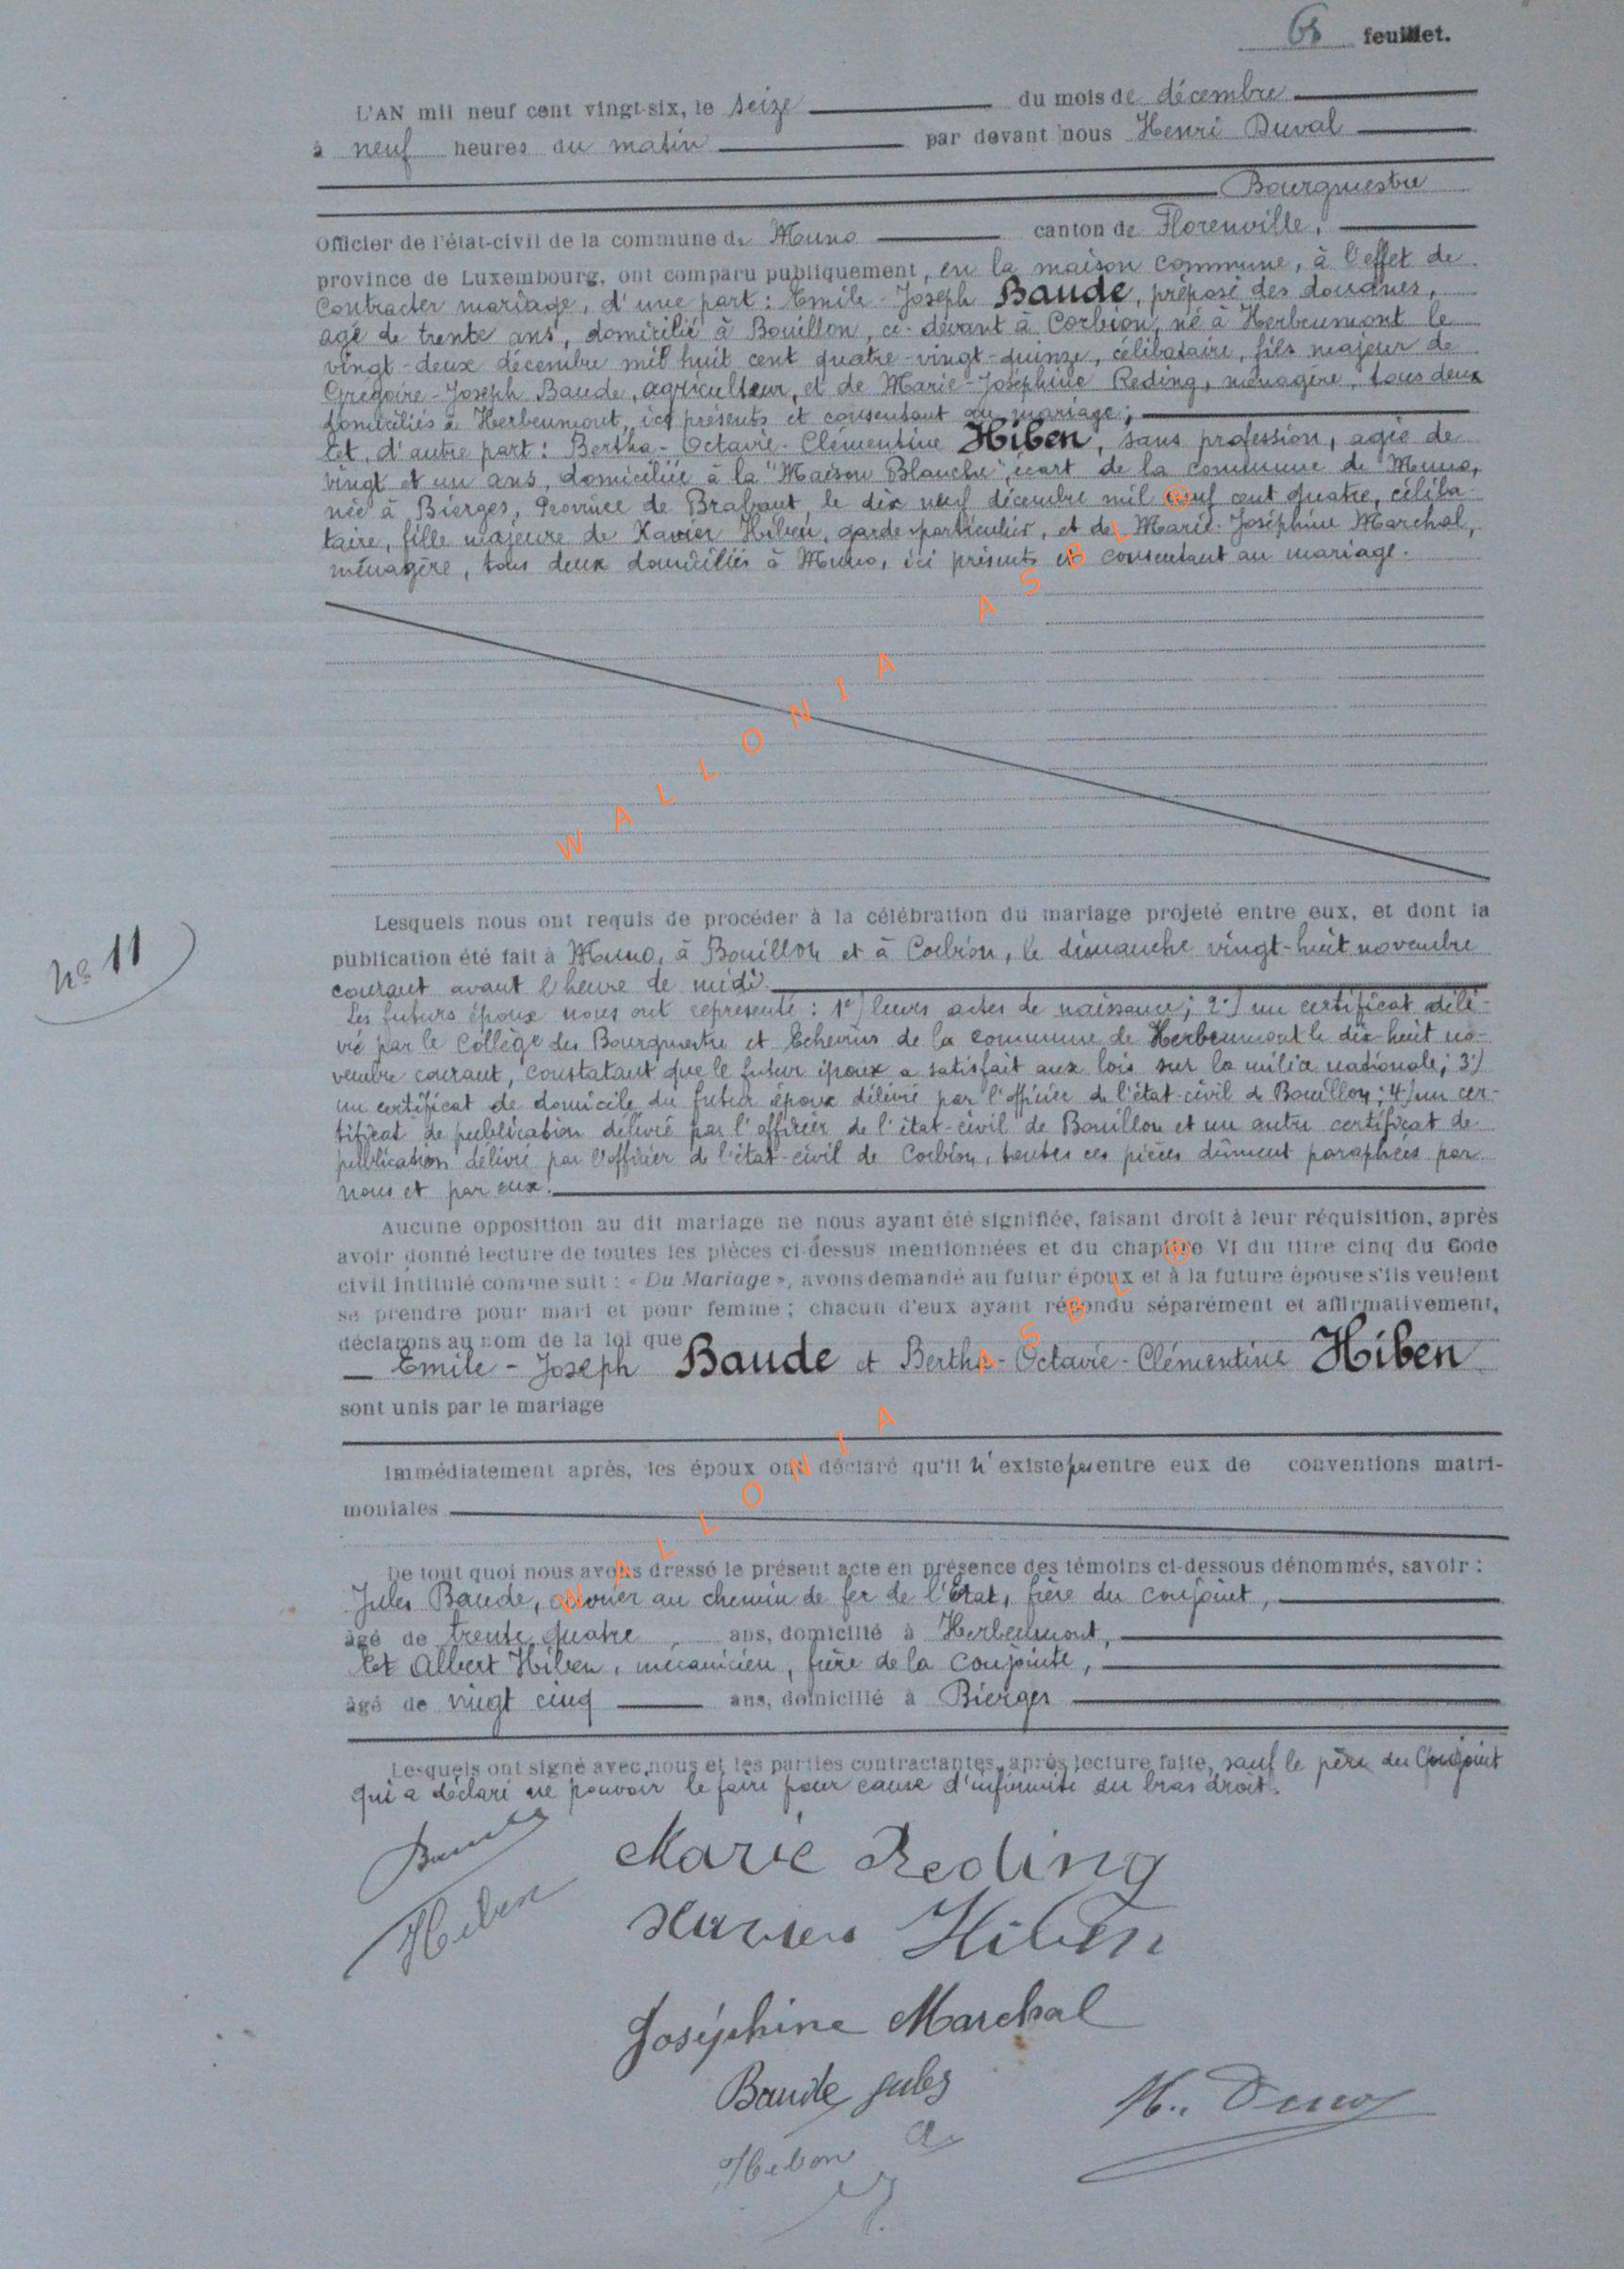 65 feuillet.
L'AN mil neuf cent vingt-six, le seize du mois de décembre
à neuf heures du matin par devant nous Henri Duval
Bourgmestre
Officier de l'état-civil de la commune de Muno canton de Florenville,
province de Luxembourg, ont comparu publiquement, en la maison commune, à l'effet de
contracter mariage, d'une part : Emile-Joseph Baude, préposé des douanes,
agé de trente ans, domicilié à Bouillon, ci-devant à Corbion, né à Herbeumont le
vingt-deux décembre mil huit cent quatre-vingt-quinze, célibataire, fils majeur de
Grégoire-Joseph Baude, agriculteur, et de Marie-Joséphine Reding, ménagère, tous deux
domiciliés à Herbeumont, ici présents et consentant au mariage;
Et, d'autre part : Bertha-Octavie-Clémentine Hiben, sans profession, agée de
vingt et un ans, domiciliée à la "Maison Blanche", écart de la commune de Muno,
née à Bierges, Province de Brabant, le dix neuf décembre mil neuf cent quatre, céliba-
taire, fille majeure de Xavier Hiben, garde-particulier, et de Marie-Joséphine Marchal,
ménagère, tous deux domiciliés à Muno, ici présents et consentant au mariage.
WALLONIA ASBL ®
Lesquels nous ont requis de procéder à la célébration du mariage projeté entre eux, et dont la
nº 11
publication été fait à Muno, à Bouillon et à Corbion, le dimanche vingt-huit novembre
courant avant l'heure de midi.
Les futurs époux nous ont représenté : 1º) leurs actes de naissance; 2º) un certificat déli-
vré par le Collège des Bourgmestre et Echevins de la commune de Herbeumont le dix-huit no-
vembre courant, constatant que le futur époux a satisfait aux lois sur la milice nationale; 3º)
un certificat de domicile du futur époux délivré par l'officier de l'état-civil de Bouillon; 4º) un cer-
tificat de publication délivré par l'officier de l'état-civil de Bouillon et un autre certificat de
publication délivré par l'officier de l'état-civil de Corbion, toutes ces pièces dûment paraphées par
nous et par eux.
Aucune opposition au dit mariage ne nous ayant été signifiée, faisant droit à leur réquisition, après
avoir donné lecture de toutes les pièces ci-dessus mentionnées et du chapitre VI du titre cinq du Code
civil intitulé comme suit : « Du Mariage », avons demandé au futur époux et à la future épouse s'ils veulent
se prendre pour mari et pour femme ; chacun d'eux ayant répondu séparément et affirmativement,
déclarons au nom de la loi que
Emile-Joseph Baude et Bertha-Octavie-Clémentine Hiben
sont unis par le mariage
WALLONIA ASBL ®
Immédiatement après, les époux ont déclaré qu'il n'existe pas entre eux de conventions matri-
moniales
De tout quoi nous avons dressé le présent acte en présence des témoins ci-dessous dénommés, savoir :
Jules Baude, ouvrier au chemin de fer de l'Etat, frère du conjoint,
âgé de trente quatre ans, domicilié à Herbeumont,
Et Albert Hiben, mécanicien, frère de la conjointe,
âgé de vingt cinq ans, domicilié à Bierges
Lesquels ont signé avec nous et les parties contractantes, après lecture faite, sauf le père du Conjoint
qui a déclaré ne pouvoir le faire pour cause d'infirmité du bras droit.
Baude Marie Reding
Hiben Xavier Hiben
Joséphine Marchal
Baude Jules
H. Duval
Hiben A